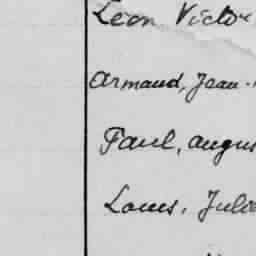 Léon Victor
Armand, Jean-
Paul, Augus
Louis, Jule